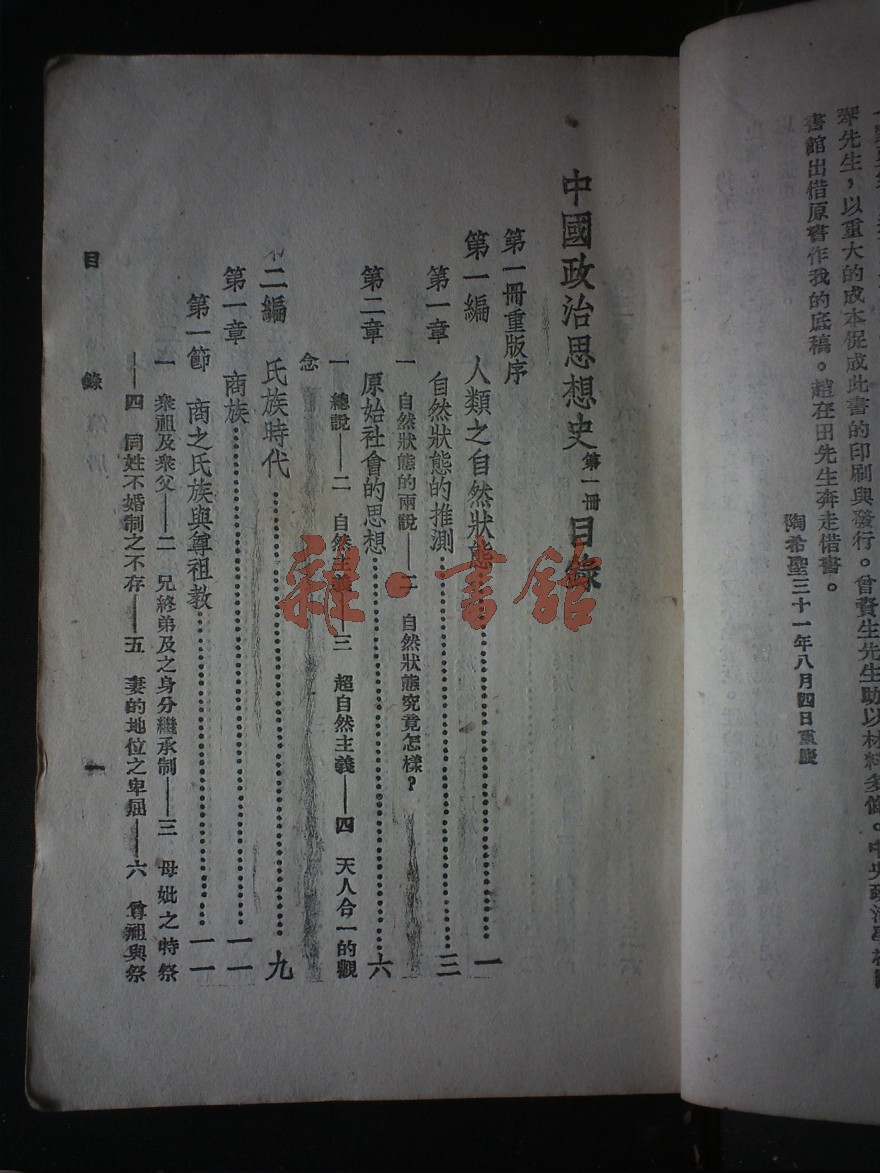 琴先生，以重大的成本促成此書的印刷與發行。曾資生先生助以材料多條。中央政治學校圖
書館出借原書作我的底稿。趙在田先生奔走借書。
陶希聖三十一年八月四日重慶
中國政治思想史第一冊目錄
第一冊重版序
第一編 人類之自然狀態……一
第一章 自然狀態的推測……三
一 自然狀態的兩說——二 自然狀態究竟怎樣？
第二章 原始社會的思想……六
一 總說——二 自然主義——三 超自然主義——四 天人合一的觀
念
第二編 氏族時代……九
第一章 商族……一一
第一節 商之氏族與尊祖教……一一
一 衆祖及衆父——二 兄終弟及之身分繼承制——三 母妣之特祭
——四 同姓不婚制之不存——五 妻的地位之卑屈——六 尊祖與祭
目錄 一
雜·書館